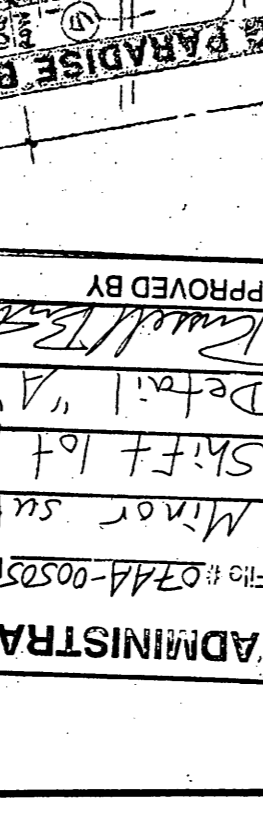 ADMINISTRA
File # 07AA-00505
Minor su
Shift lot
Detail "A"
Russell
PPROVED BY
PARADISE B
5